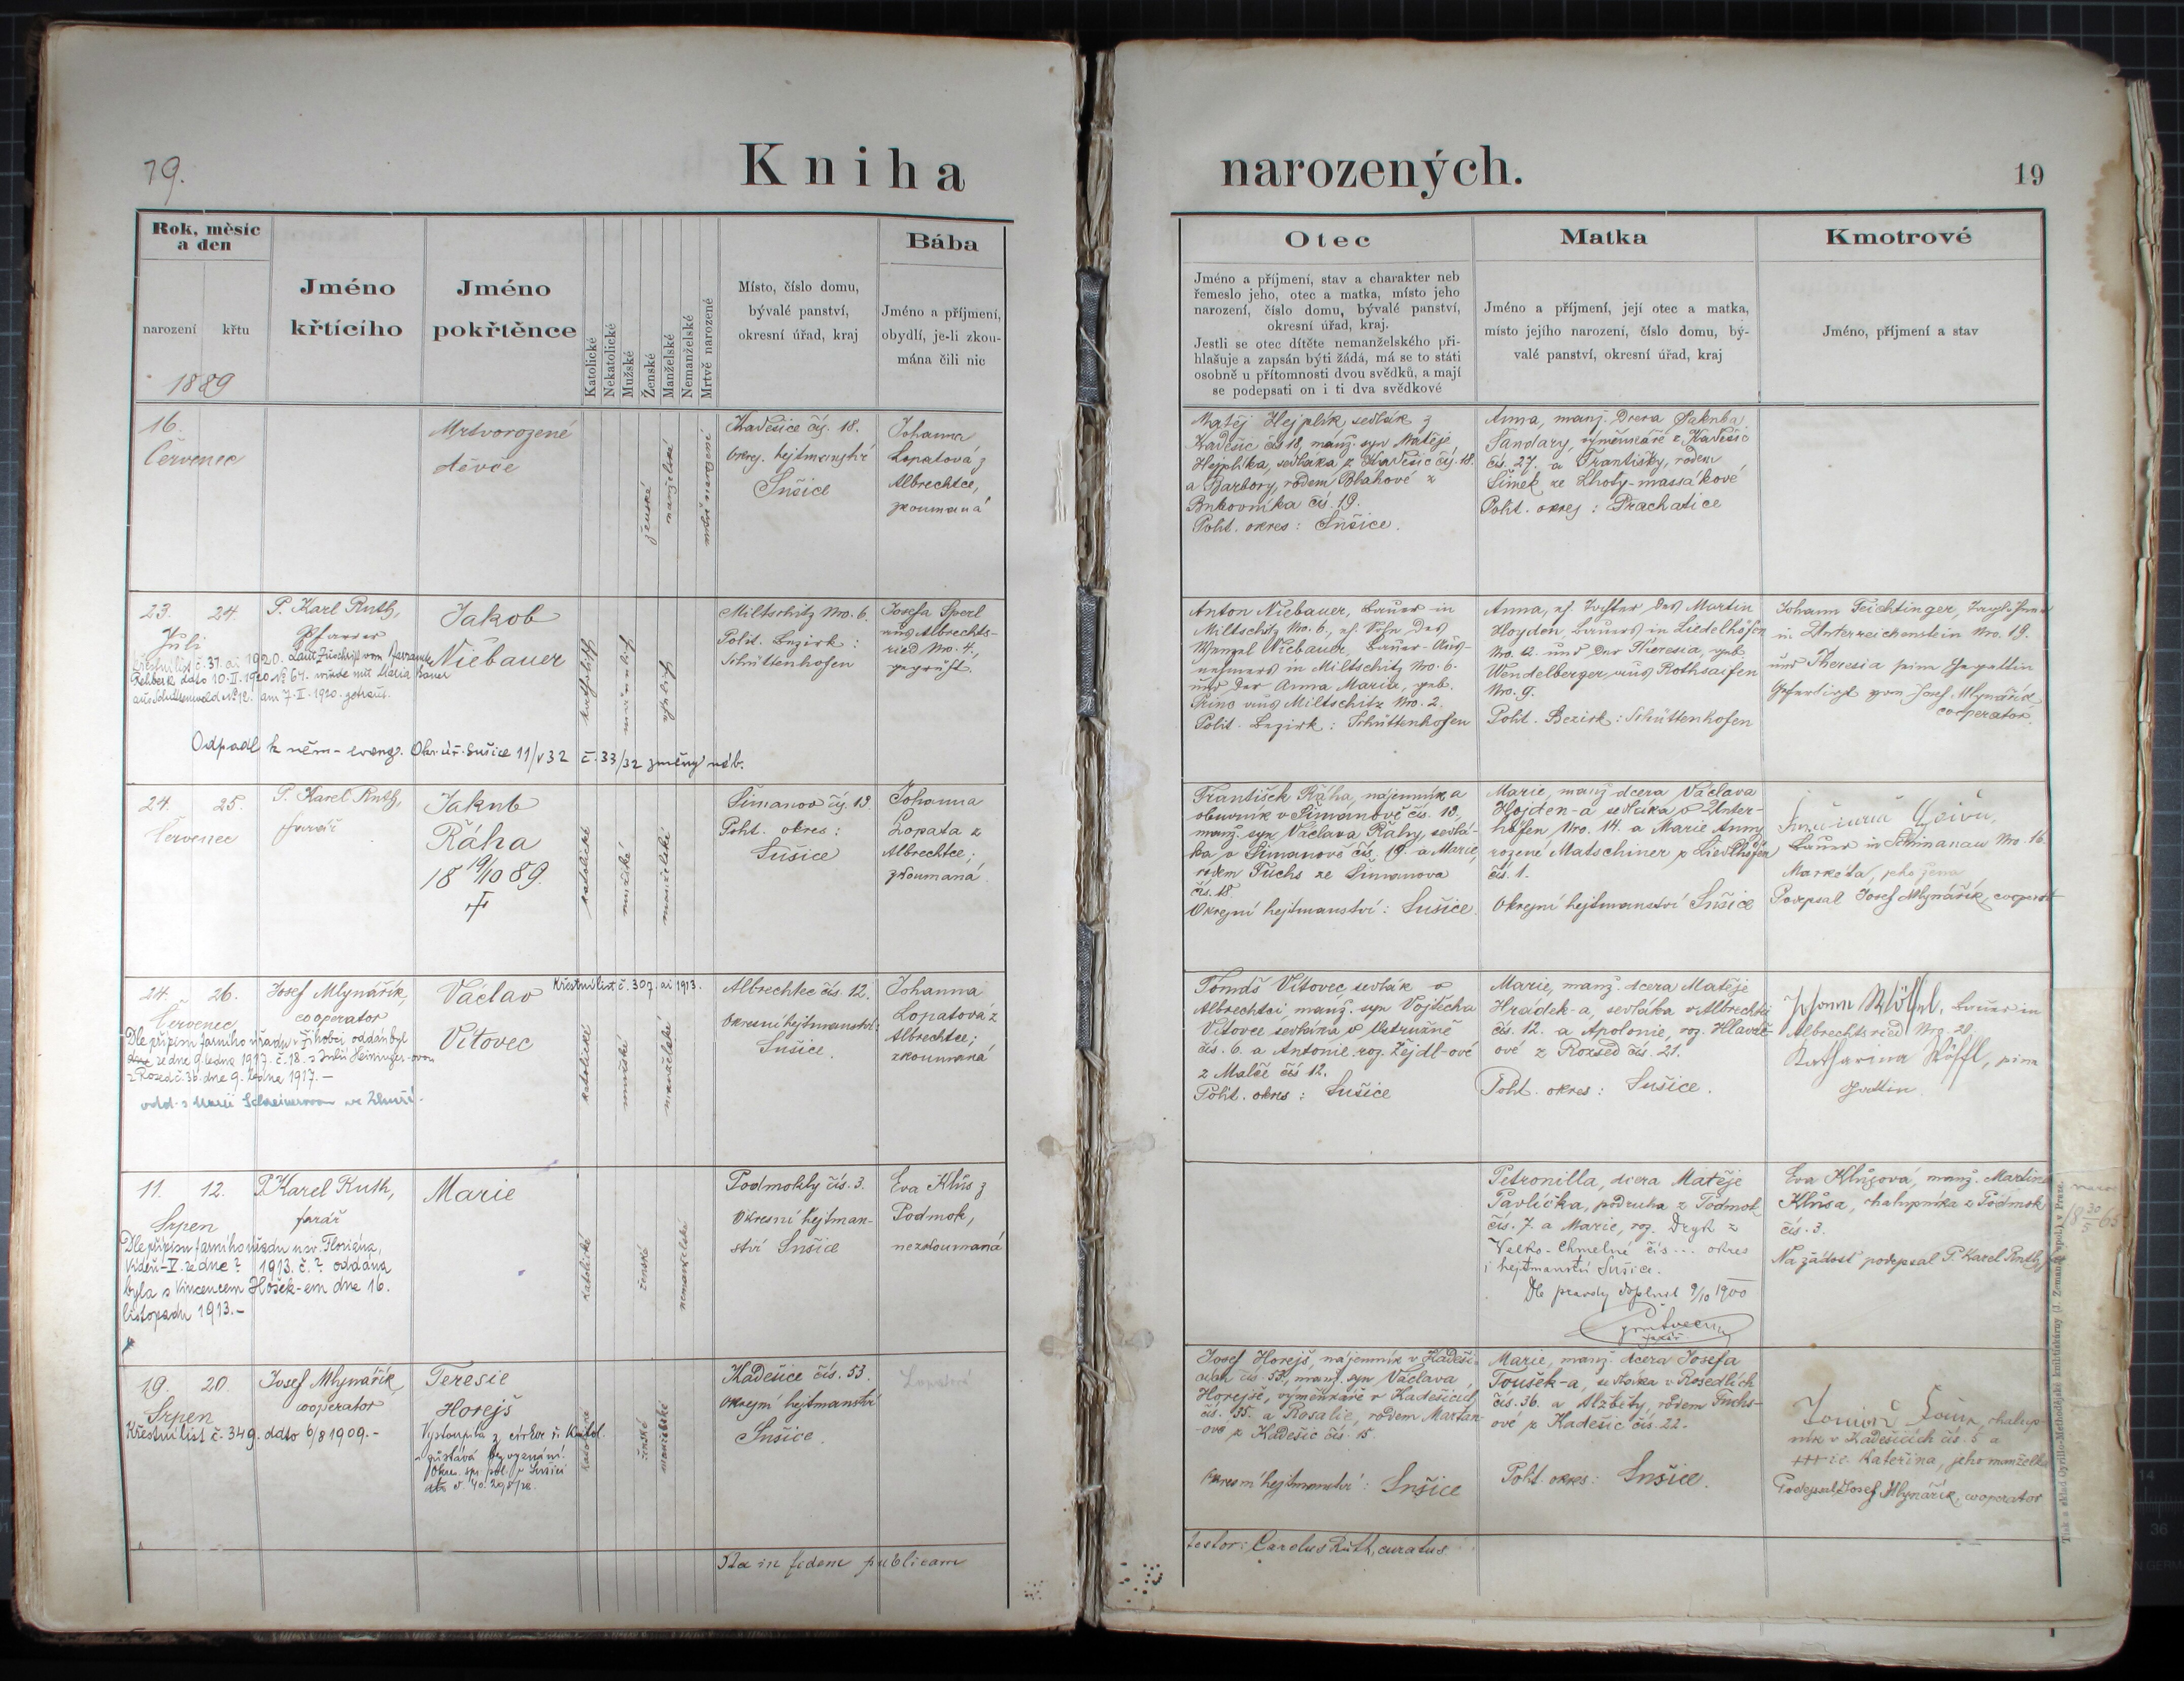 19.
Kniha
narozených.
19
Rok, měsíc
a den
narození
křtu
1889
Jméno
křtícího
Jméno
pokřtěnce
Katolické
Nekatolické
Mužské
Ženské
Manželské
Nemanželské
Mrtvě narozené
Místo, číslo domu,
bývalé panství,
okresní úřad, kraj
Bába
Jméno a příjmení,
obydlí, je-li zkou-
mána čili nic
Otec
Jméno a příjmení, stav a charakter neb
řemeslo jeho, otec a matka, místo jeho
narození, číslo domu, bývalé panství,
okresní úřad, kraj.
Jestli se otec dítěte nemanželského při-
hlašuje a zapsán býti žádá, má se to státi
osobně u přítomnosti dvou svědků, a mají
se podepsati on i ti dva svědkové
Matka
Jméno a příjmení, její otec a matka,
místo jejího narození, číslo domu, bý-
valé panství, okresní úřad, kraj
Kmotrové
Jméno, příjmení a stav
16.
Červenec
Mrtvorozené
děvče
ženské
manželské
mrtvě narozené
Kadešice čís. 18.
Okres. hejtmanství
Sušice
Johanna
Lopatová z
Albrechtce,
zkoumaná
Matěj Hejplík, sedlák z
Kadešic čís 18, manž. syn Matěje
Hejplíka, sedláka z Kadešic čís. 18.
a Barbory, rodem Bláhové z
Bukovníka čís. 19.
Polit. okres: Sušice.
Anna, manž. Dcera Jakuba
Šandary, výměnkáře z Kadešic
čís. 27. a Františky, rodem
Šimek ze Lhoty-massákové
Polit. okres: Prachatice
23. 24.
Juli
P. Karl Ruth,
Pfarrer
Jakob
Niebauer
Křestní list č. 37. ai 1920. Laut Zuschrift vom Pfarramte
Rehberk ddto 10.II.1920 № 64. wurde mit Maria Bauer
aus Schüttenwald № 12. am 7.II.1920. getraut.
Odpadl k něm-evang. Okr. úř. Sušice 11/V 32 č. 33/32 změny náb.
katholisch
männlich
ehelich
Miltschitz Nro. 6.
Polit. Bezirk:
Schüttenhofen
Josefa Sperl
aus Albrechts-
ried Nro. 4.,
geprüft.
Anton Niebauer, Bauer in
Miltschitz Nro. 6., eh. Sohn des
Wenzel Niebauer, Bauer-Aus-
nehmers in Miltschitz Nro. 6.
und der Anna Maria, geb.
aus Miltschitz Nro. 2.
Polit. Bezirk: Schüttenhofen
Anna, eh. Tochter des Martin
Hoydn, Bauers in Liedelhöfen
Nro. 2. und der Theresia, geb.
Wendelberger aus Rothsaifen
Nro. 9.
Polit. Bezirk: Schüttenhofen
Johann Feichtinger,
in Unterreichenstein Nro. 19.
und Theresia seine Ehegattin
Gefertigt von Josef Mlynářík
cooperator.
24. 25.
Červenec
P. Karel Ruth,
farář
Jakub
Řáha
18 19/10 89.
†
katolické
mužské
manželské
Šimanov čís. 19.
Polit. okres:
Sušice
Johanna
Lopata z
Albrechtce;
zkoumaná.
František Řáha, nájemník a
obuvník v Šimanově čís. 19.,
manž. syn Václava Řáhy, sedlá-
ka v Šimanově čís. 19. a Marie,
rodem Fuchs ze Šimanova
čís. 18.
Okresní hejtmanství: Sušice.
Marie, manž. dcera Václava
Hojden-a sedláka v Unter-
höfen Nro. 14. a Marie Anny
rozené Matschiner z Liedlhöfen
čís. 1.
Okresní hejtmanství Sušice
Bauer in Schimanau Nro. 16.
Markéta, jeho žena
Podepsal Josef Mlynářík, cooperat
24. 26.
Červenec
Josef Mlynářík,
cooperator
Václav
Vítovec
Křestní list č. 307. ai 1913.
Dle přípisu farního úřadu v Žihobci oddán byl
ze dne 9. ledna 1917. č. 18. s Julií Heininger-ovou
z Rozsed č. 36. dne 9. ledna 1917.-
odd. s Marií ve Zhuři.
katolické
mužské
manželské
Albrechtec čís. 12.
Okresní hejtmanství:
Sušice.
Johanna
Lopatová z
Albrechtce;
zkoumaná
Tomáš Vítovec sedlák v
Albrechtci, manž. syn Vojtěcha
Vítovce sedláka v Ostružně
čís. 6. a Antonie roz. Zejdl-ové
z Malče čís 12.
Polit. okres: Sušice
Marie, manž. dcera Matěje
Hrádek-a, sedláka v Albrechtci
čís. 12. a Apolonie, roz. Hlavač-
ové z Rozsed čís. 21.
Polit. okres: Sušice.
Johann Bauer in
Albrechtsried Nro. 20.
Katharina seine
Gattin.
11. 12.
Srpen
P. Karel Ruth,
farář
Marie
Dle přípisu farního úřadu u sv. Floriána,
Vídeň-V. ze dne ? 1913. č. ? oddána
byla s Vincencem Hošek-em dne 16.
listopadu 1913.-
katolické
ženské
nemanželské
Podmokly čís. 3.
Okresní hejtman-
ství Sušice
Eva Klůs z
Podmok,
nezkoumaná
Petronilla, dcera Matěje
Pavlíčka, podruha z Podmok
čís. 7. a Marie, roz. z
Velko-Chmelné čís... okres
i hejtmanství Sušice.
Dle pravdy doplnil 9/10 1900
farář
Eva Klůsová, manž. Martina
Klůsa, chalupníka z Podmok
čís. 3.
Na žádost podepsal P. Karel Ruth
19. 20.
Srpen
Josef Mlynářík,
cooperator
Křestní list č. 349. ddto 6/8 1909.-
Teresie
Horejš
Vystoupila z církve ř. katol.
zůstává bez vyznání.
katolické
ženské
manželské
Kadešice čís. 53.
Okresní hejtmanství
Sušice.
Lopatová
Josef Horejš, nájemník v Kadeši-
cích čís. 53, manž. syn Václava
Horejše, výměnkáře v Kadešicích
čís. 35. a Rosalie, rodem Martan-
ové z Kadešic čís. 15.
Okresní hejtmanství: Sušice
Marie, manž. dcera Josefa
Toušek-a, sedláka v Rosedlích
čís. 36. a Alžběty, rodem Fuchs-
ové z Kadešic čís. 22.
Polit. okres: Sušice.
chalup-
ník v Kadešicích čís. 5 a
+++ ic. Kateřina, jeho manželka
Podepsal Josef Mlynářík, cooperator
Ita in fidem publicam
testor: Carolus Ruth, curatus.
Tisk a sklad Cyrillo-Methodějské knihtiskárny (J. Zeman a spol.) v Praze.